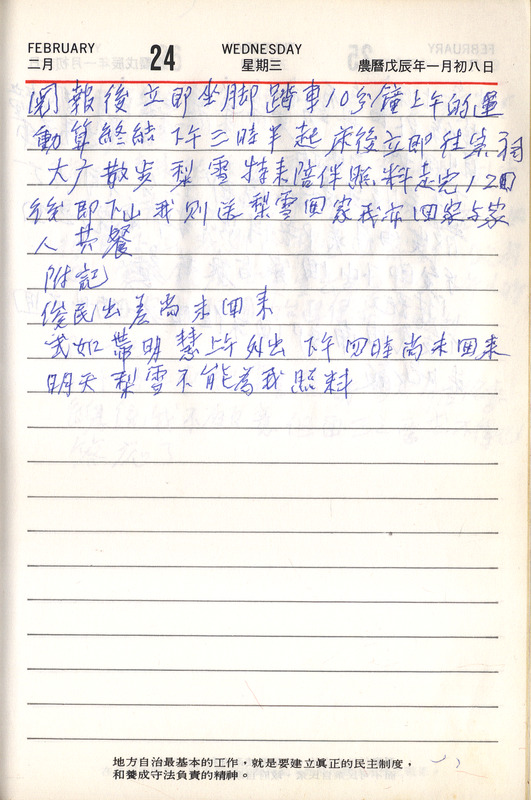 FEBRUARY 24 WEDNESDAY
二月 星期三 農曆戊辰年一月初八日
報後立即坐脚踏車10分鐘上午的運
動算終結下午三時半起床後立即往崇
大广散步梨雪特来陪伴照料走完12回
後即下山我則送梨雪回家我亦回家与家
人共餐
附記
俊民出差尚未回来
式如帶明慧上午外出下午四時尚未回来
明天梨雪不能為我照料
地方自治最基本的工作，就是要建立眞正的民主制度，
和養成守法負責的精神。